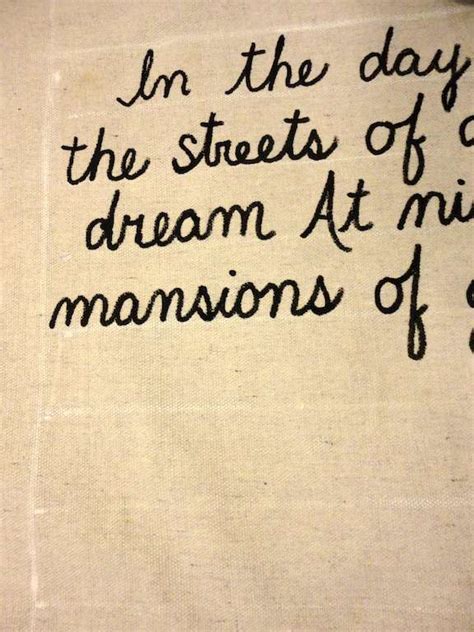 In the day
the streets of
dream At ni
mansions of